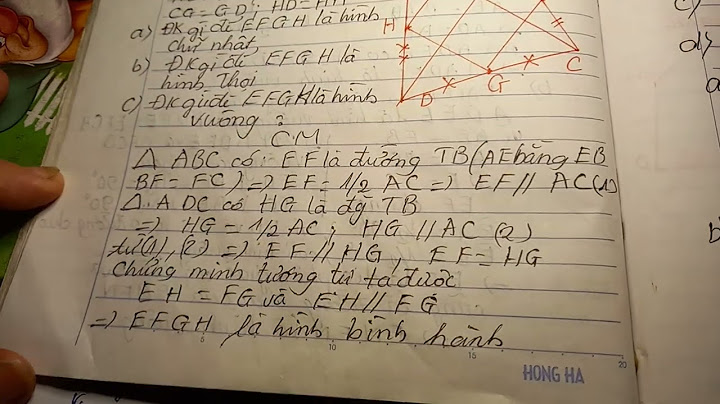 CG = GD; HD = HA
a) ĐK gì để EFGH là hình
chữ nhật
b) ĐK gì để EFGH là
hình thoi
c) ĐK gì để EFGH là hình
vuông :
H
D
G
C
CM
Δ ABC có: EF là đường TB (AE bằng EB
BF = FC) => EF = 1/2 AC => EF // AC (1)
Δ ADC có HG là đg TB
=> HG = 1/2 AC ; HG // AC (2)
từ (1), (2) => EF // HG, EF = HG
Chứng minh tương tự ta được
EH = FG và EH // FG
=> EFGH là hình bình hành
5 10 15 20
HONG HA